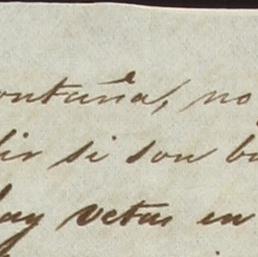 ontaña, no
dir si son b
hay vetas en